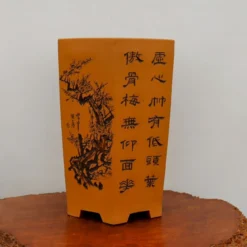 虛心竹有低頭葉
傲骨梅無仰面花